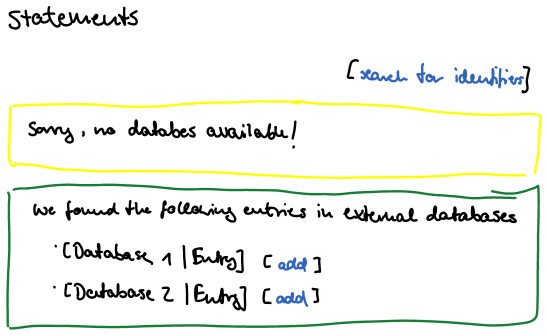 Statements
[search for identifiers]
Sorry, no databes available!
we found the following entries in external databases
· [Database 1 | Entry] [add]
· [Database 2 | Entry] [add]